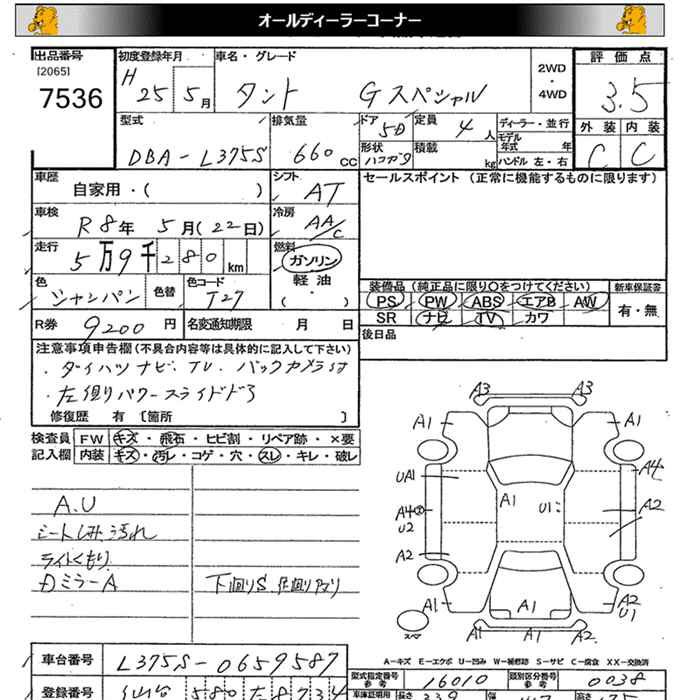 オールディーラーコーナー
出品番号 初度登録年月 車名・グレード 評価点
[2065] 7536 H 25 5月 タント Gスペシャル 2WD・4WD 3.5
型式 排気量 ドア 定員 ディーラー・並行 外装 内装
DBA-L375S 660cc 5D 4人 モデル年式 年 C C
形状 積載 kg ハンドル 左・右
車歴 自家用・( ) シフト AT セールスポイント (正常に機能するものに限ります)
車検 R8年 5月(22日) 冷房 AA/C
走行 5万9千280km 燃料 ガソリン 軽油 ・( )
色 シャンパン 色替 色コード T27
装備品 (純正品に限り○をつけてください) 新車保証書
PS PW ABS エアB AW 有・無
SR ナビ TV カワ
R券 9200円 名変通知期限 月 日 後日品
注意事項申告欄(不具合内容等は具体的に記入して下さい)
・ダイハツナビ、TV、バックカメラ付
・左側りパワースライドドア
修復歴 有 [箇所 ]
検査員 FW キズ・飛石・ヒビ割・リペア跡・×要
記入欄 内装 キズ・汚レ・コゲ・穴・スレ・キレ・破レ
A.U
シートしみ汚れ
ライトくもり
Dミラー A 下回りS
A3 A3
A1 A1
UA1 A4
A1 U1
A4 U2 A2
A2
A1 A1 A2 U1
スペア A1 A2
A-キズ E-エクボ U-凹み W-補修跡 S-サビ C-腐食 XX-交換済
車台番号 L375S-0659587 型式指定番号 参考 16010 類別区分番号 参考 0038
登録番号 580 8734 車庫証明用 参考 長さ 339 幅 147 高さ 175